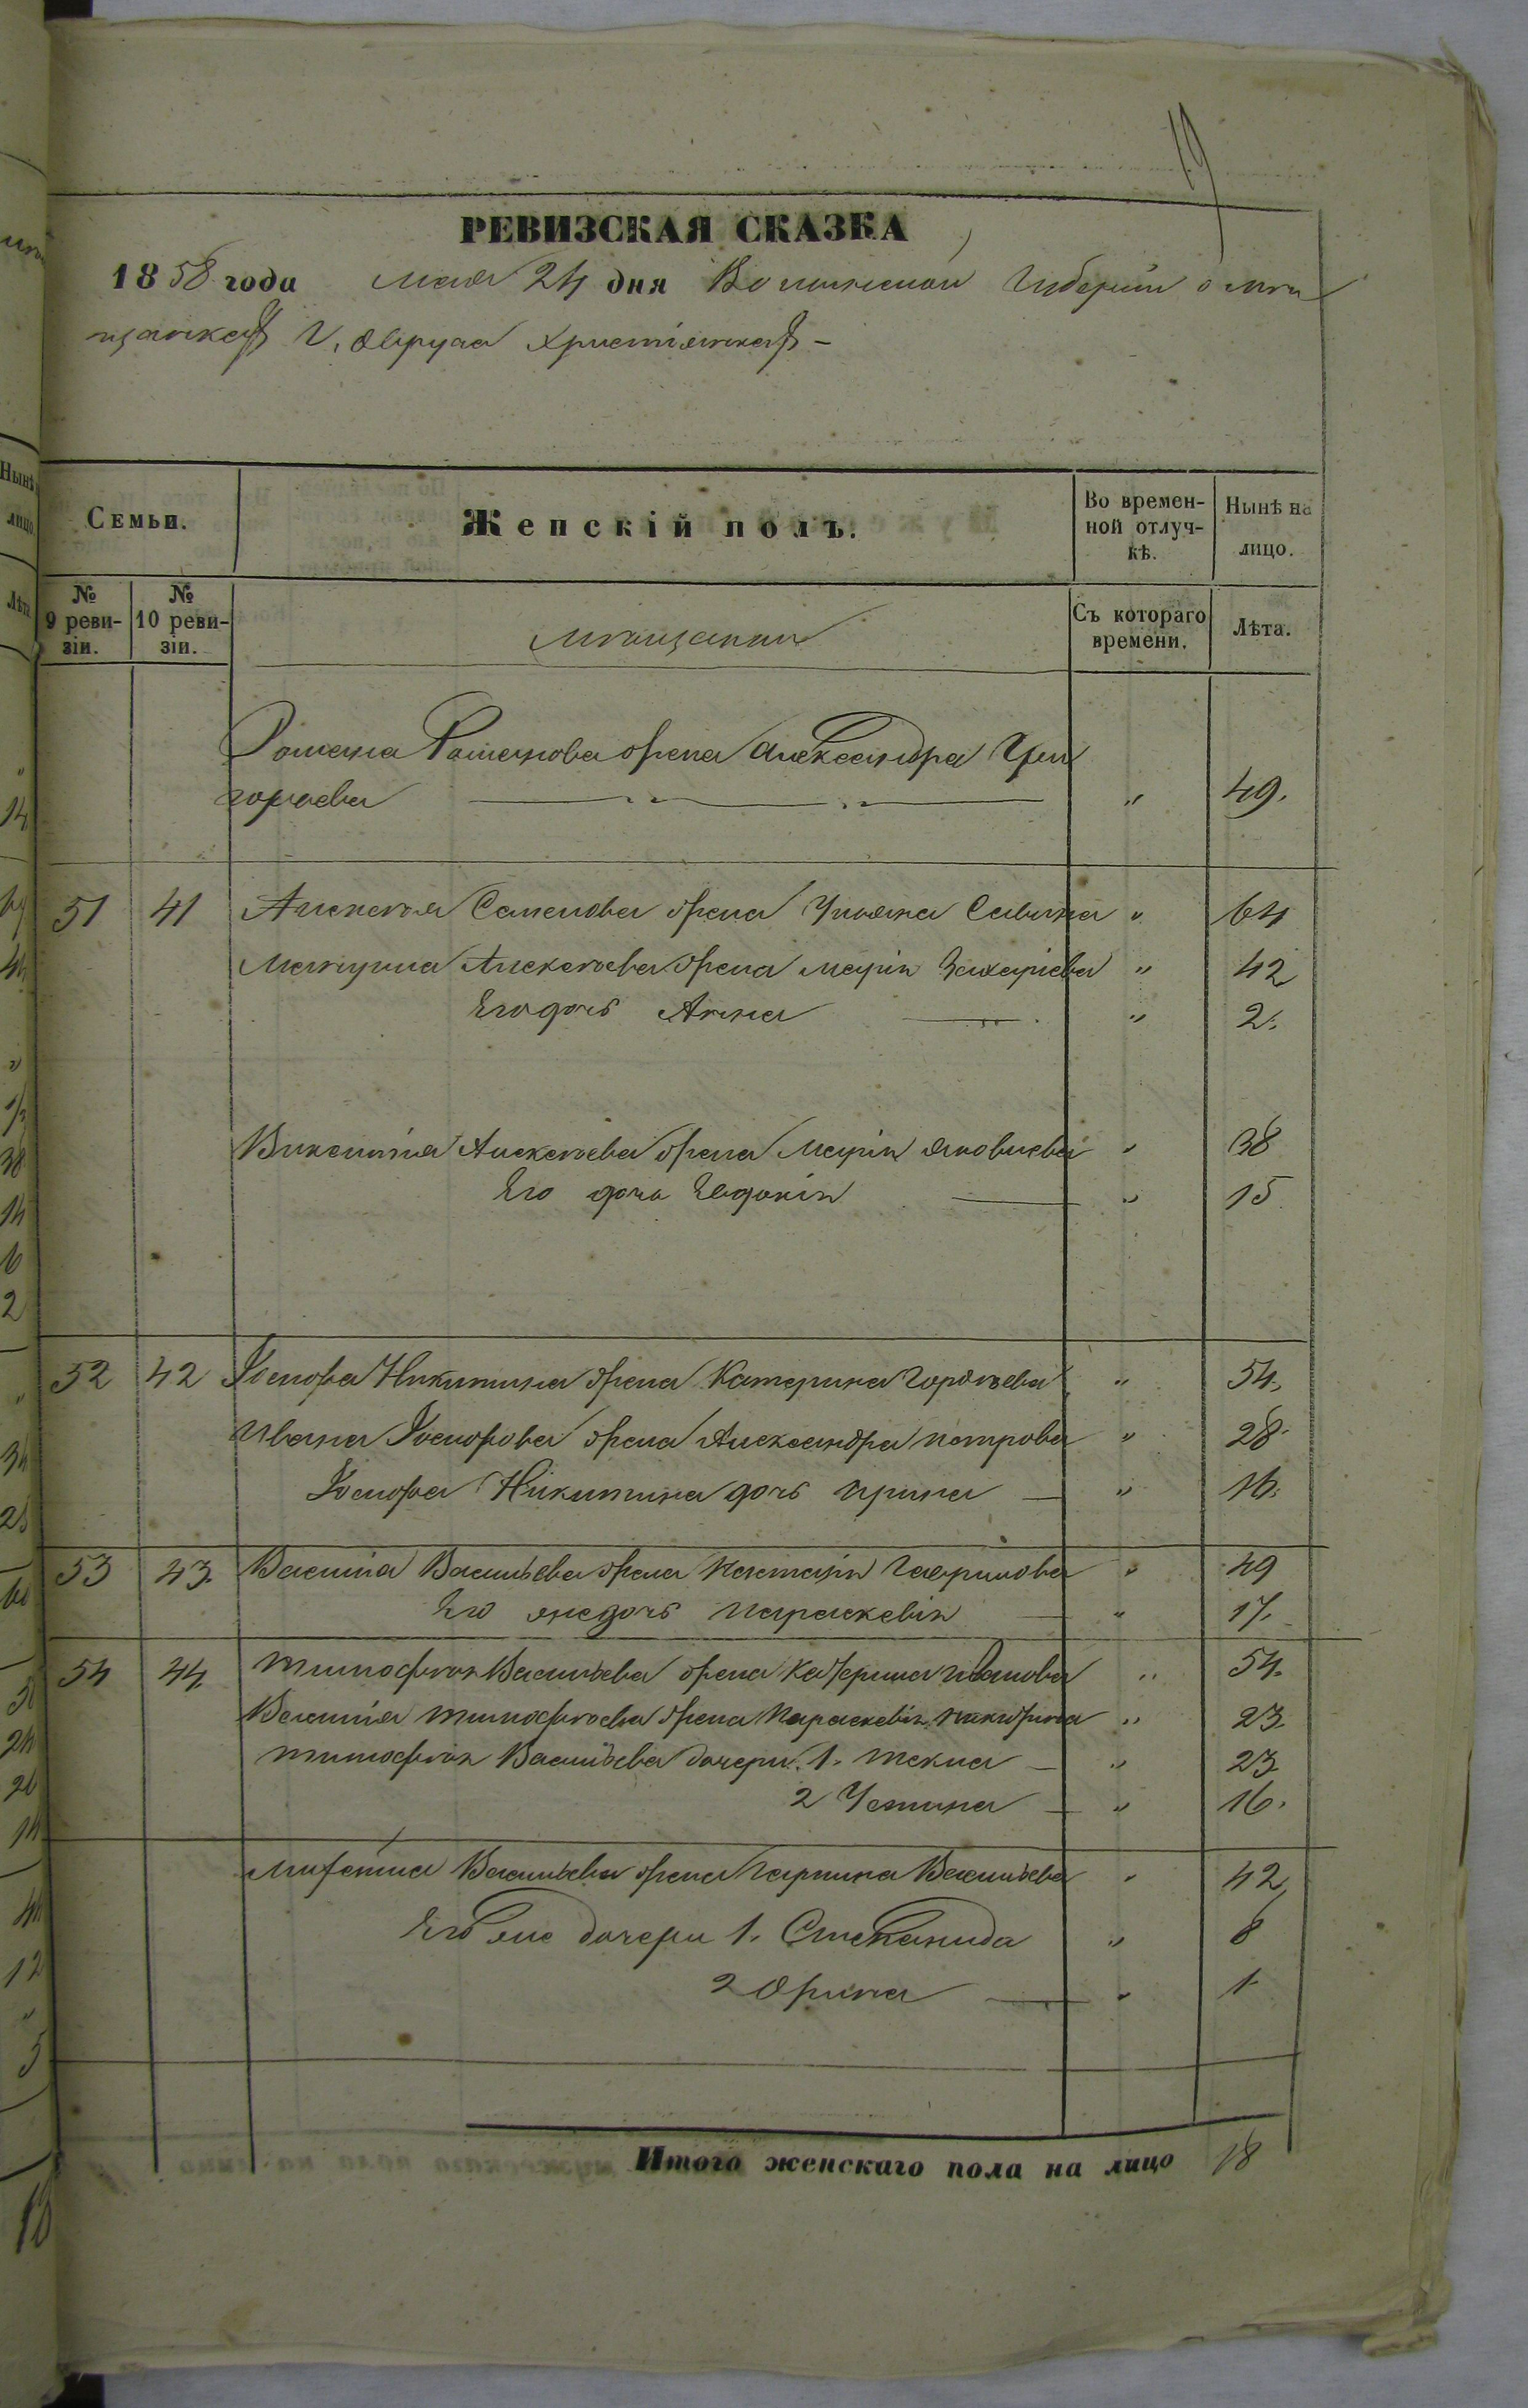 19
РЕВИЗСКАЯ СКАЗКА
1858 года мая 24 дня Волынской Губерніи о мѣщ
анкахъ г. Овруча христіянкахъ -
Семьи.
Женскій полъ.
Во времен-
ной отлуч-
кѣ.
Нынѣ на
лицо.
№
9 реви-
зіи.
№
10 реви-
зіи.
Съ котораго
времени.
Лѣта.
жена Александра Гри
горьева " 49.
51 41 Алексѣя Семенова жена Ульяна Савина " 64
Алексѣева жена Марія Захаріева " 42
Его дочь Анна " 2.
Викентія Алексѣева жена Марія Яковлева " 38
Его дочь Евдокія " 15
52 42 Іосифа Никитина жена Катерина Гордѣева " 54.
Ивана Іосифова жена Александра Петрова " 28.
Іосифа Никитина дочь Ирина — " 16.
53 43. Василія Васильева жена Настасія Гаврилова " 49
Его же дочь Параскевія — " 17.
54 44 Тимофѣя Васильева жена Катерина Иванова " 54.
Василія Тимофѣева жена Параскевія " 23.
Тимофѣя Васильева дочери. 1. Текля — " 23.
2 Устина — " 16.
Васильева жена Васильева " 42
Его же дочери 1. Степанида " 8
2 Орина — " 1
Итого женскаго пола на лицо 18